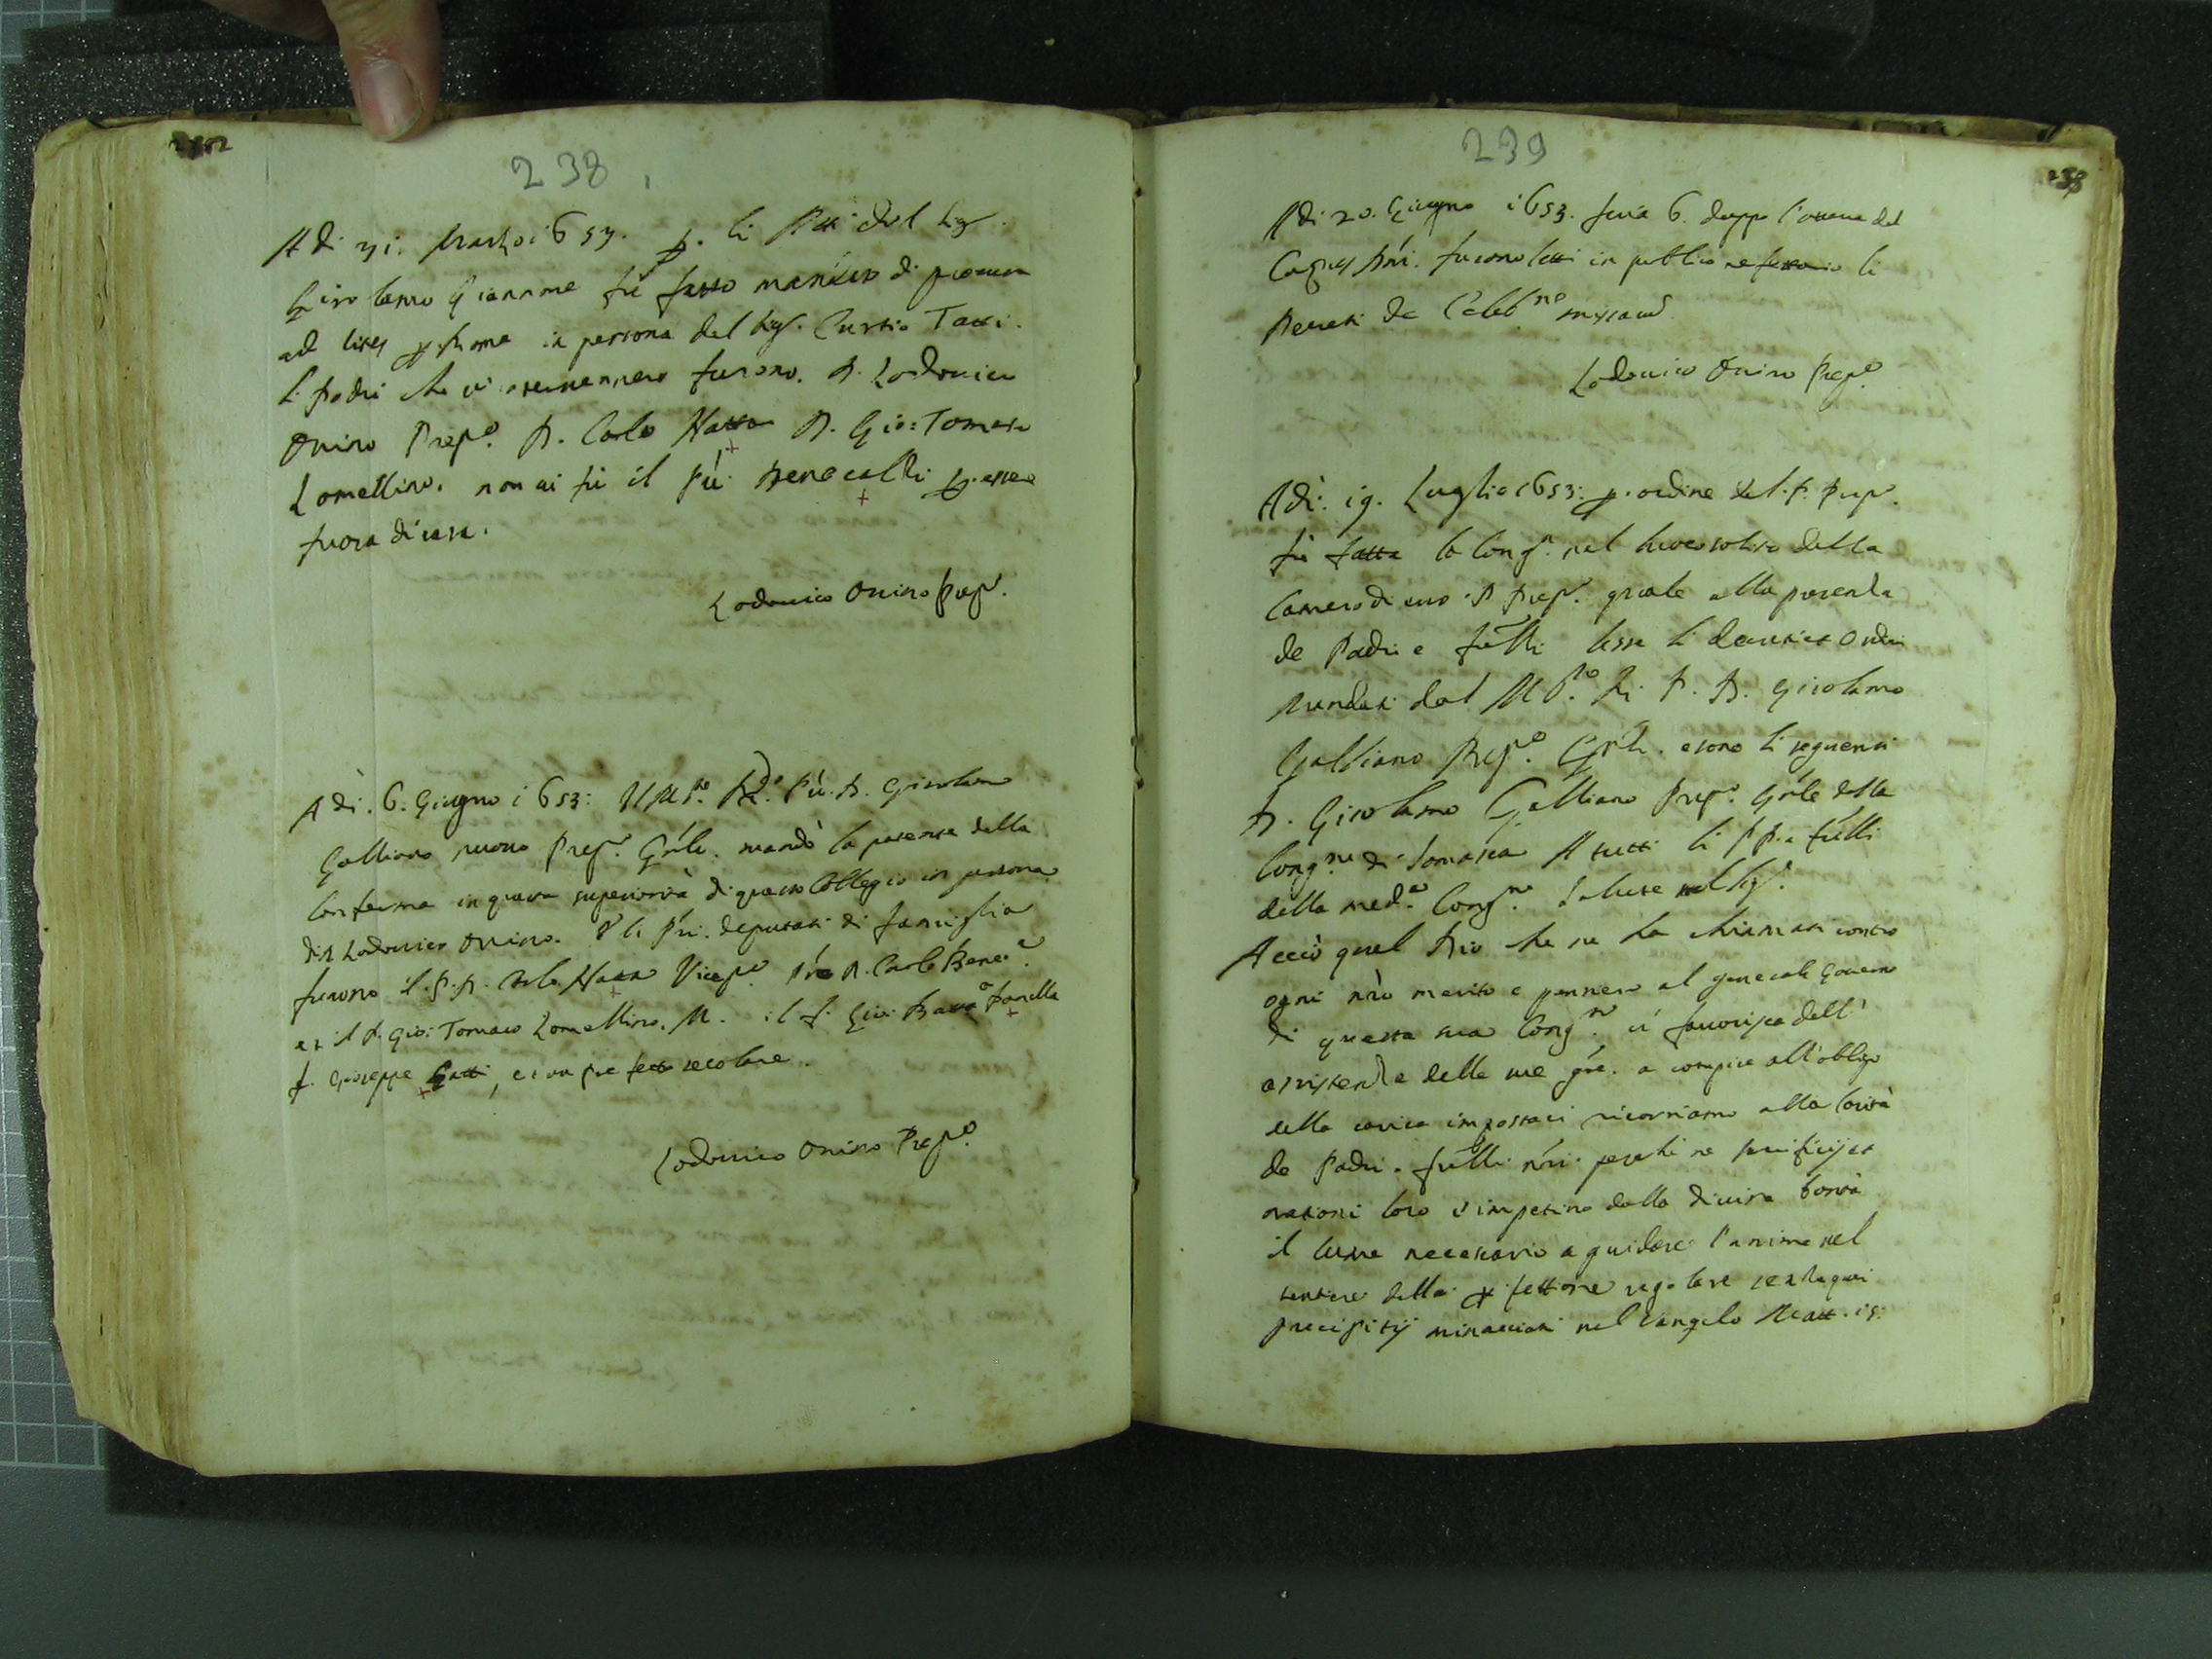 238
Adi 31. Marzo 1653. p. li Atti del Sigr.
Girolamo Giannone fù fatto mandato di procura
ad lites p Roma in persona del Sigr. Curtio Tassi.
li Padri che vi intervennero furono. D. Lodovico
Onino Prepo. D. Carlo Natta D. Gio: Tomaso
Lomellino. non ui fù il Pre. Benecelli p. essere
fuora di casa.
Lodovico Onino Prepo.
Adì. 6. Giugno 1653: Il M. Rdo. Pre. D. Girolamo
Galliano nuovo Prepo. Gńle. mandò la patente della
Conferma in questa superiorità di questo Collegio in persona
di D. Lodovico Onino. & li Pri. deputati di famiglia
furono il. P. D. Carlo Natta Vicepo. Pre D. Carlo Bene:
et il P. Gio: Tomaso Lomellino. M. il f. Gio: Batta Panella
f. Gioseppe Gatti, et un prefetto secolare.
Lodovico Onino Prepo.
239
Adi 20. Giugno 1653. feria 6. doppo l'ottaua del
Corpus Dńi. furono letti in publico refettorio li
Decreti de Celebne missaru.
Lodovico Onino Prepo.
Adì: 19. Luglio 1653: p. ordine del. P. Prepo.
fù fatta la Congr. nel luoco solito della
Camera di esso P. Prepo. quale alla presenza
de Padri e frēlli lesse li ordini
mandati dal M. Rdo. P. D. Girolamo
Galliano Prepo. Gńle. e sono li seguenti
D. Girolamo Galliano Prepo. Gńle della
Congne di Somasca A tutti li PP. e frēlli
della meda. Congne. Salute nel Sigr.
Acciò quel Dio che ne ha chiamati contro
ogni ńro merito e pensiero al generale Gouerno
di questa sua Congne. ci fauorisca dell'
assistenza della sue gre. a compire all'obligo
della carica impostaci ricorriamo alla carità
de Padri. frēlli ńri. perche ne sacrificij et
orationi loro c'impetrino dalla diuina bontà
il lume necessario a guidare l'anime nel
sentiero della pfettione regolare senza quei
precipitij minacciati nel Vangelo Matt. 15: